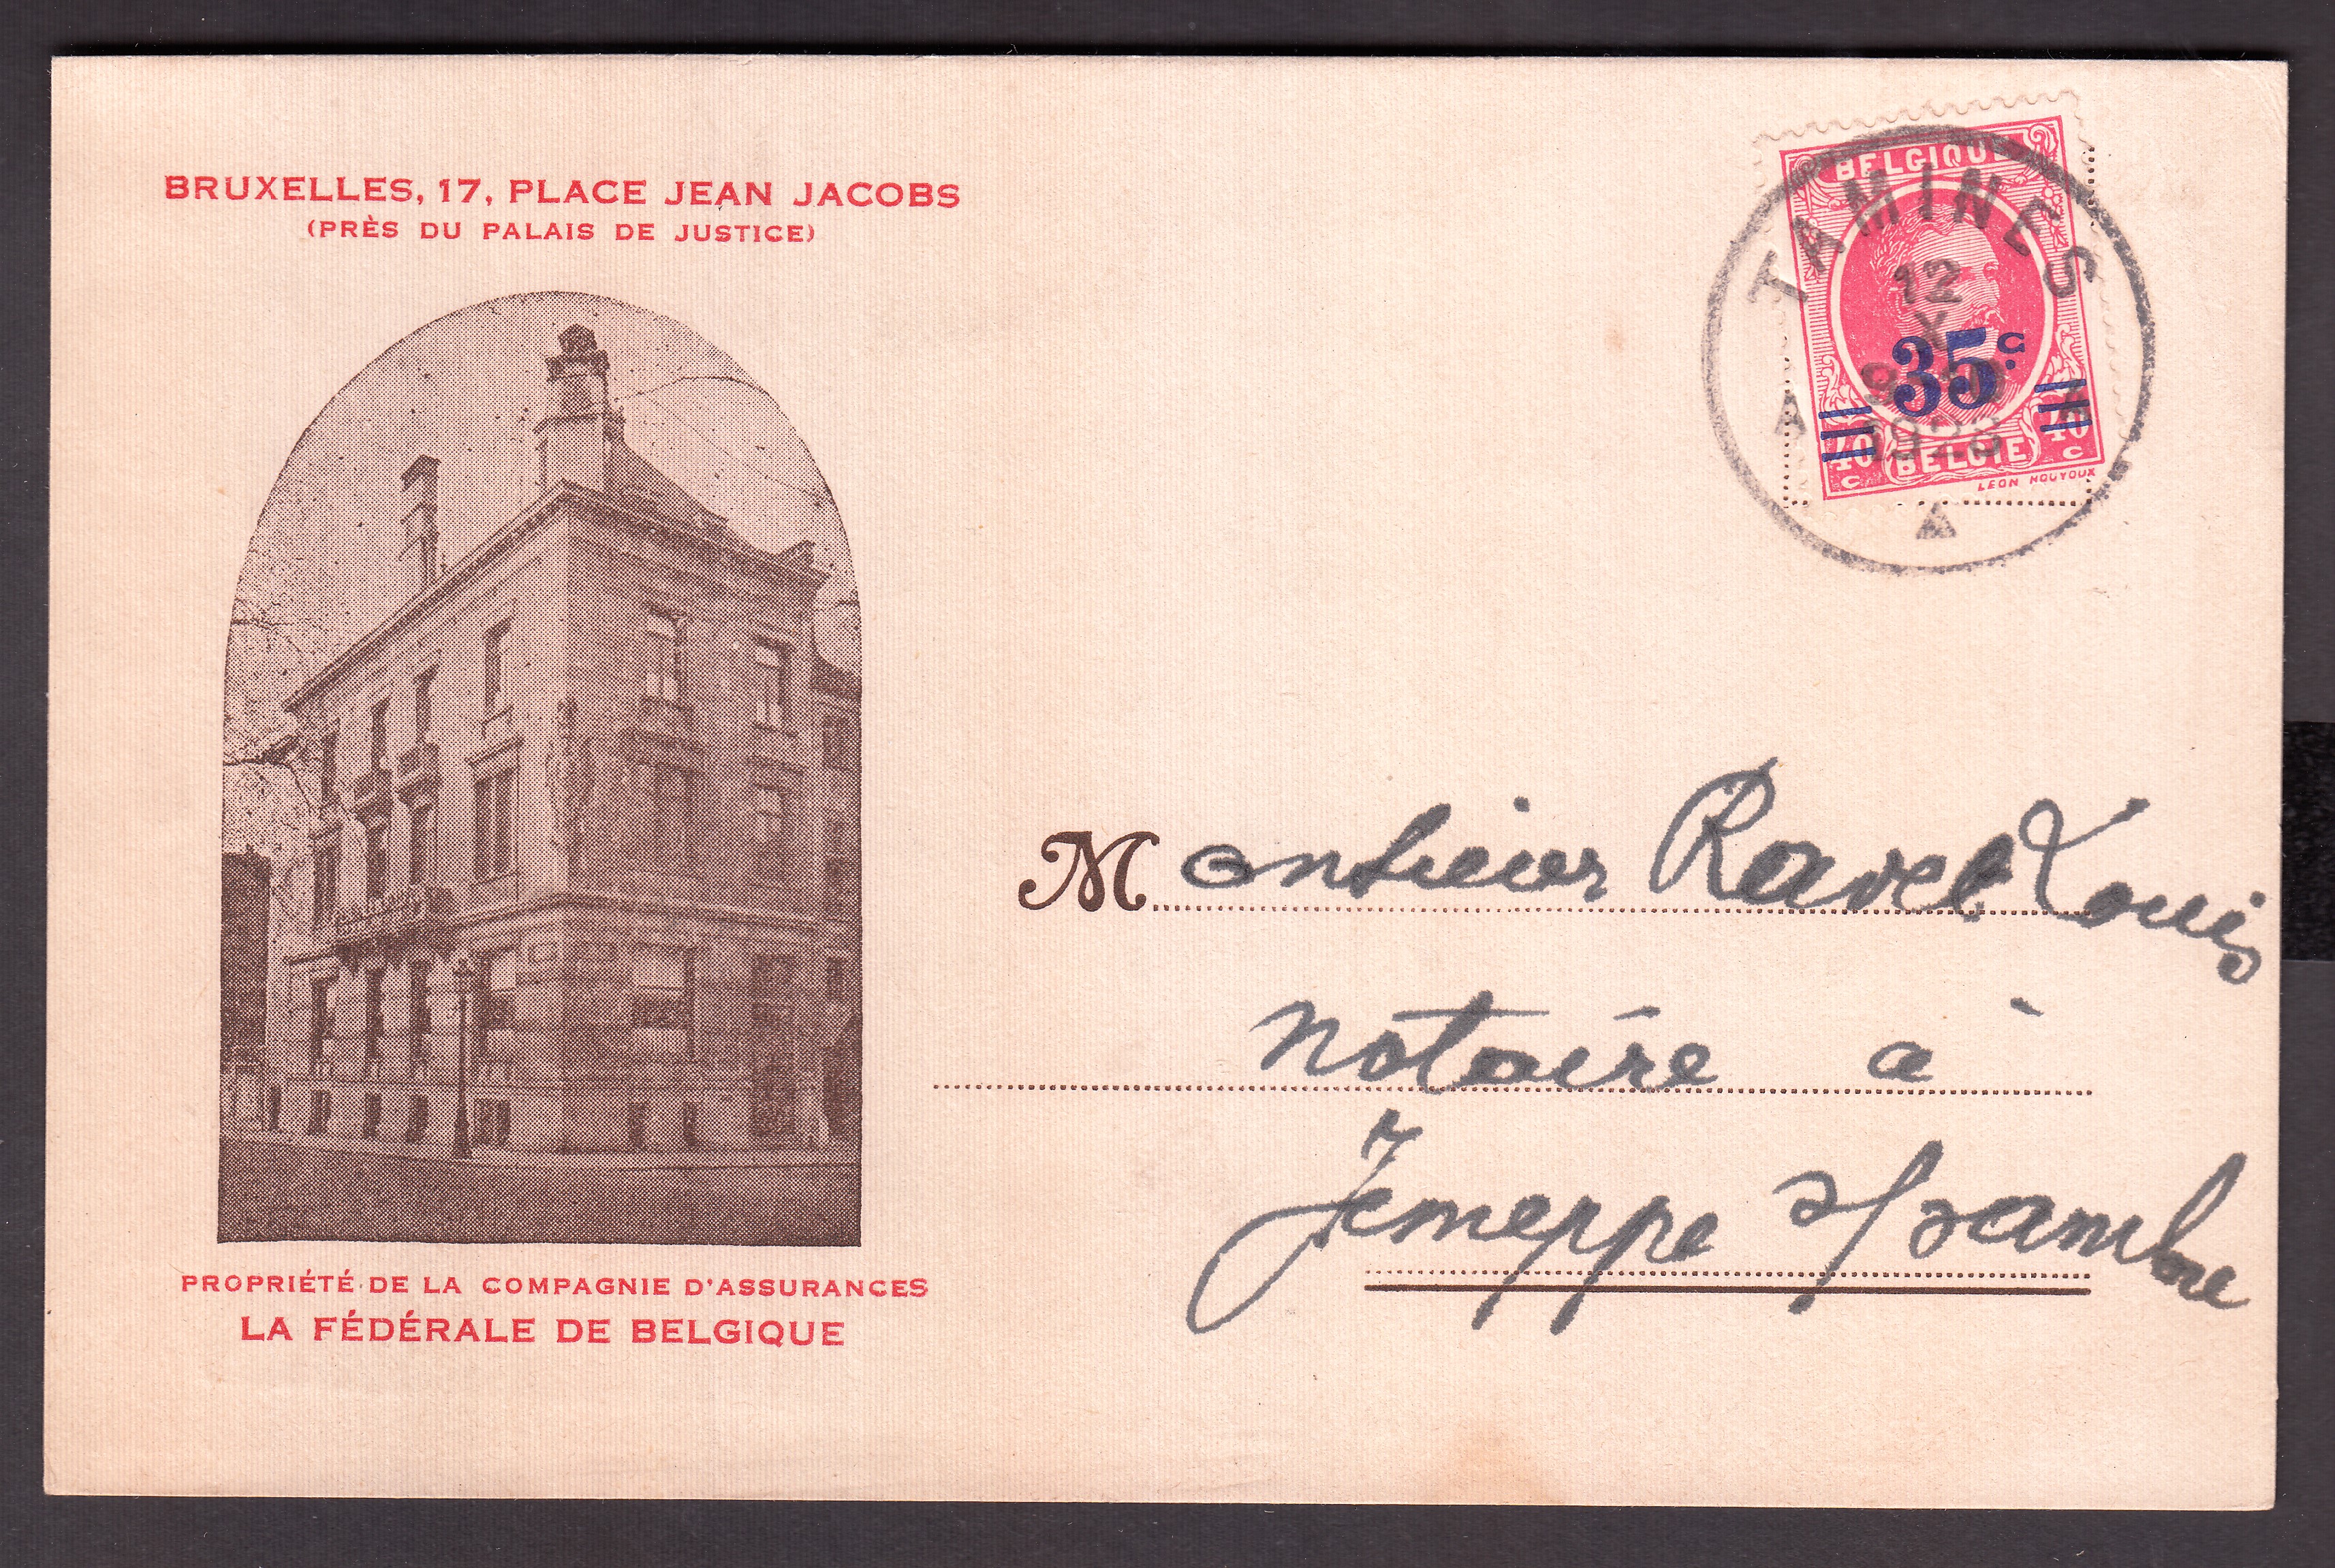 BRUXELLES, 17, PLACE JEAN JACOBS
(PRÈS DU PALAIS DE JUSTICE)
PROPRIÉTÉ DE LA COMPAGNIE D'ASSURANCES
LA FÉDÉRALE DE BELGIQUE
BELGIQUE
35c.
40 40
c BELGIË c
LEON HOUYOUX
TAMINES
12
X
A A
Monsieur Ravet Louis
notaire à
Jemeppe s/sambre